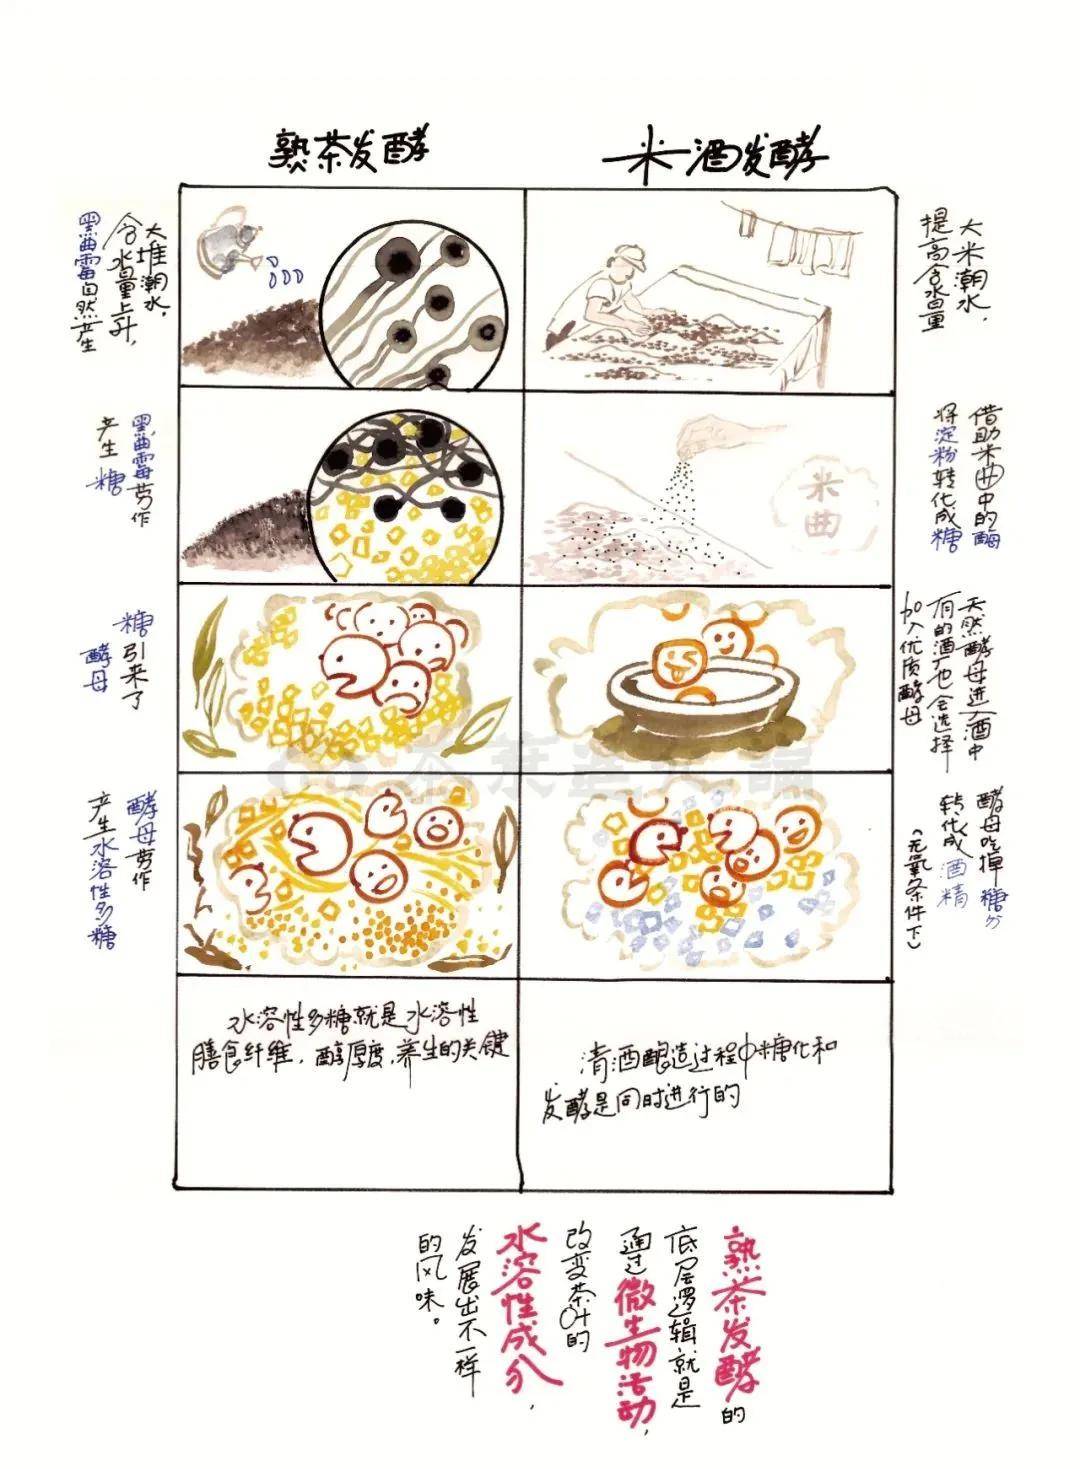 熟茶发酵
米酒发酵
大堆潮水，
含水量上升，
黑曲霉自然产生
大米潮水，
提高含水量
黑曲霉劳作
产生糖
米曲
借助米曲中的酶
将淀粉转化成糖
糖引来了
酵母
天然酵母进入酒中
有的酒厂也会选择
加入优质酵母
酵母劳作
产生水溶性多糖
酵母吃掉糖分
转化成酒精
（无氧条件下）
水溶性多糖就是水溶性
膳食纤维，醇厚度，养生的关键
清酒酿造过程中糖化和
发酵是同时进行的
熟茶发酵的
底层逻辑就是
通过微生物活动，
改变茶叶的
水溶性成分，
发展出不一样
的风味。